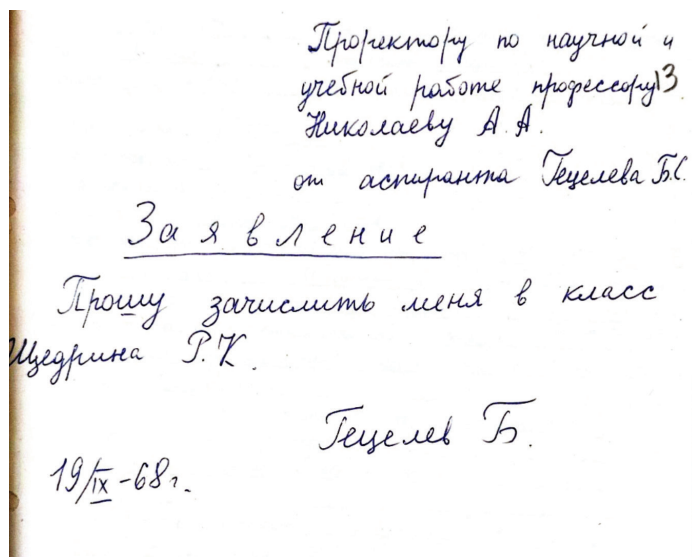 Проректору по научной и
учебной работе профессору 13
Николаеву А.А.
от аспиранта Гецелева Б.С.
Заявление
Прошу зачислить меня в класс
Щедрина Р.К.
Гецелев Б.
19/IX-68г.